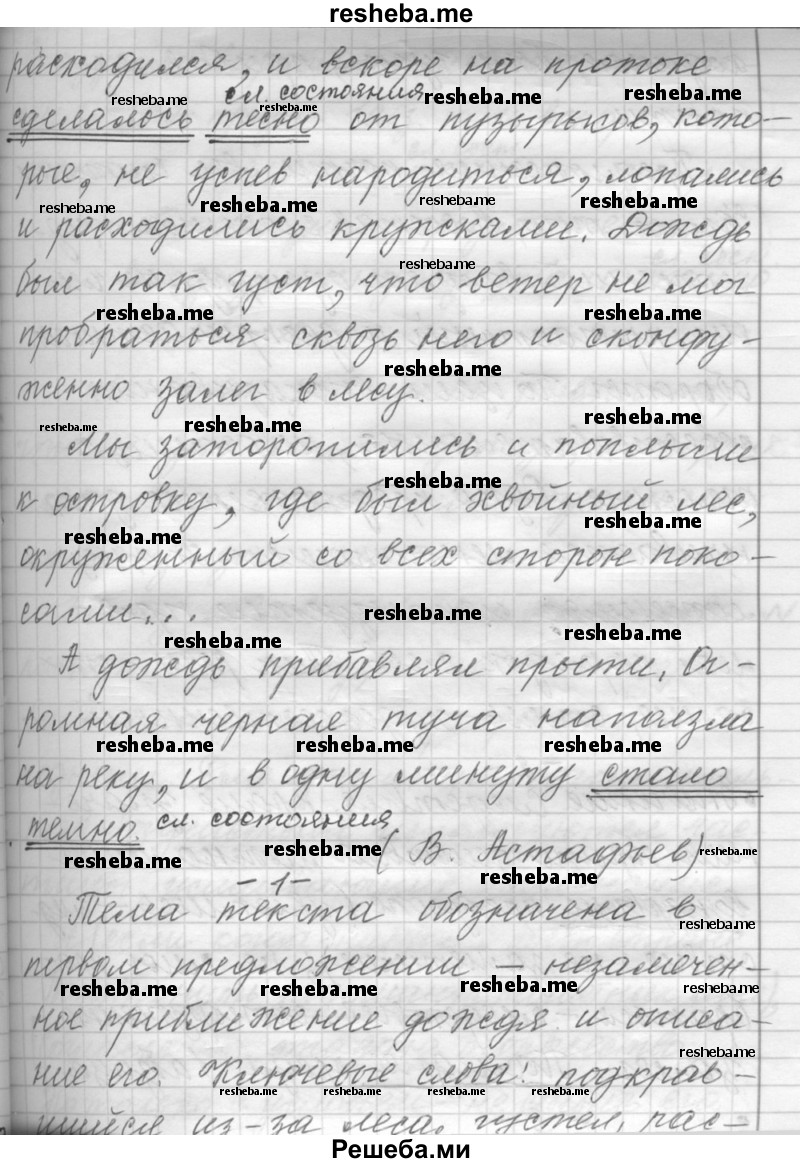 resheba.me
расходился, и вскоре на протоке
сл. состояния
сделалось тесно от пузырьков, кото-
рые, не успев народиться, лопались
и расходились кружками. Дождь
был так густ, что ветер не мог
пробраться сквозь него и сконфу-
женно залег в лесу.
Мы заторопились и поплыли
к островку, где был хвойный лес,
окруженный со всех сторон поко-
сами...
А дождь прибавлял прыти. Ог-
ромная черная туча наползла
на реку, и в одну минуту стало
темно. сл. состояния
(В. Астафьев)
-1-
Тема текста обозначена в
первом предложении – незамечен-
ное приближение дождя и описа-
ние его. Ключевые слова: подкрав-
шийся из-за леса, густел, рас-
Решеба.ми